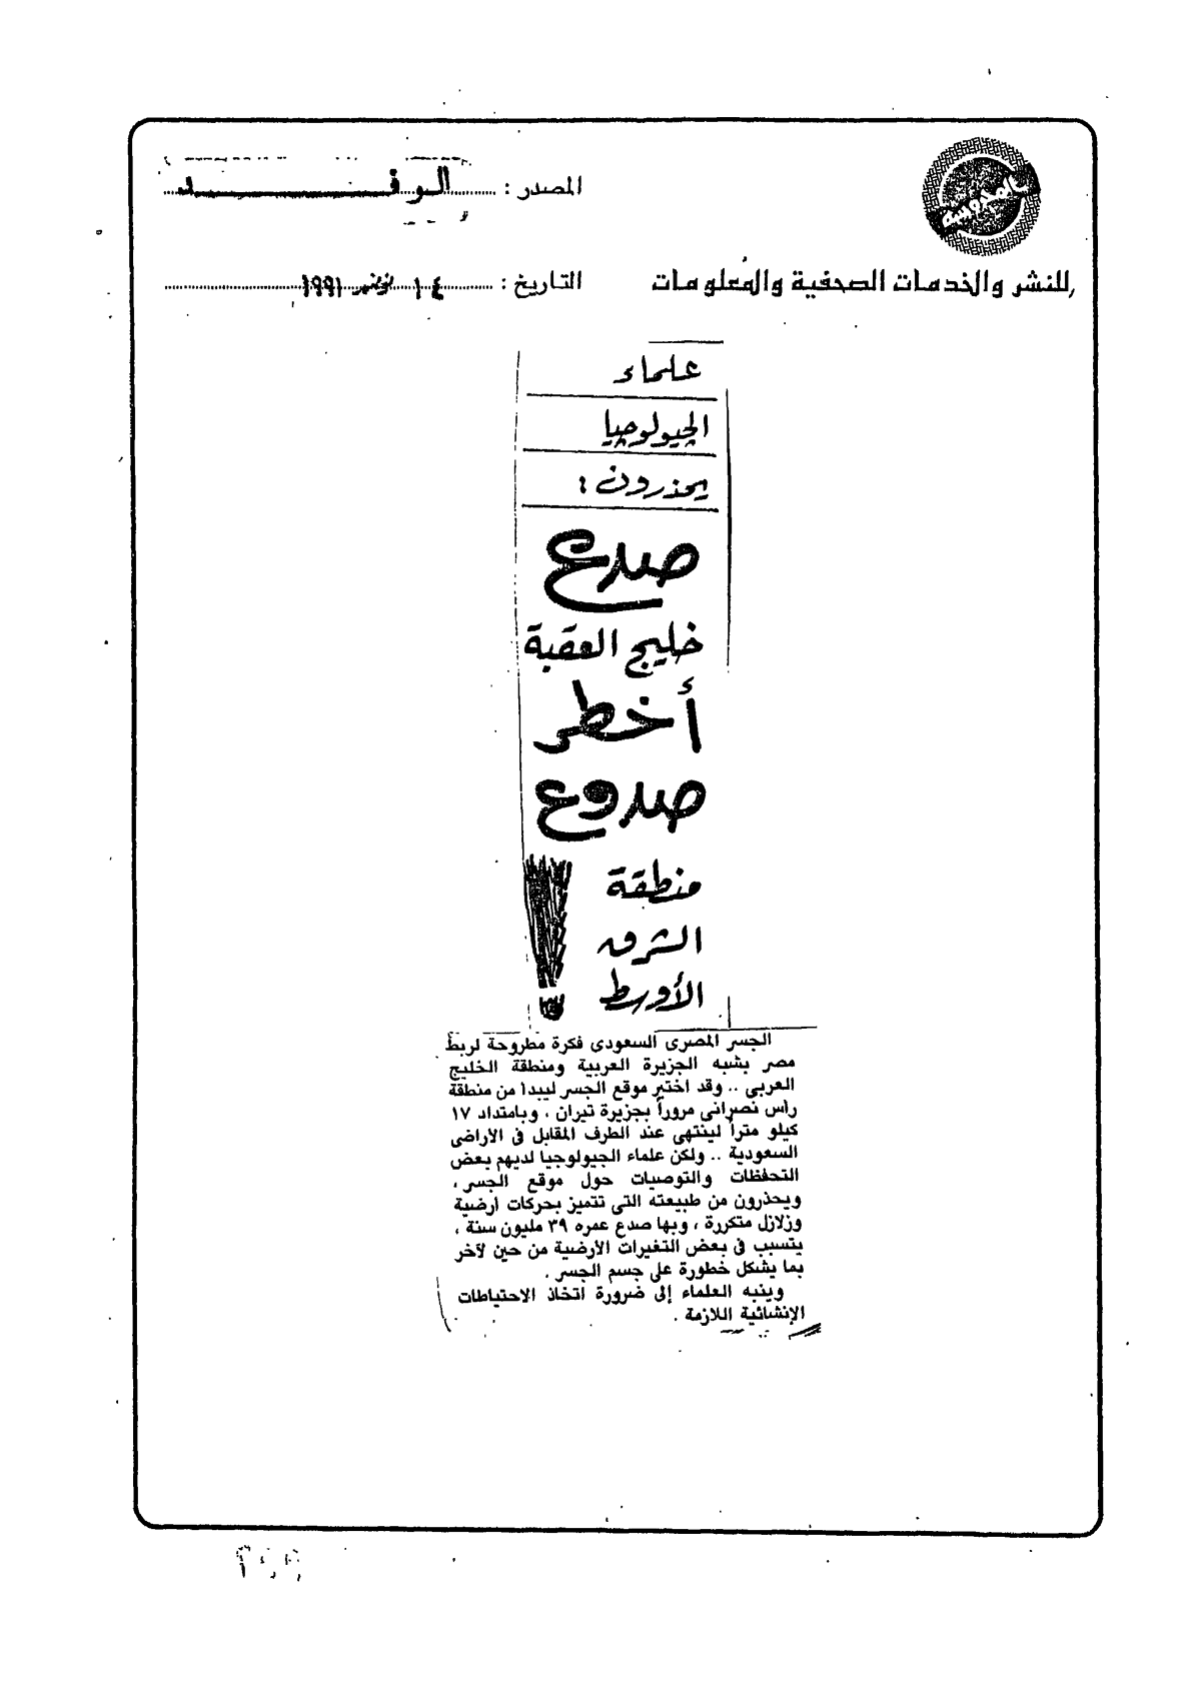 المدوسة
المصدر : الوفد
للنشر والخدمات الصحفية والمعلومات
التاريخ : ١٤ نوفمبر ١٩٩١
علماء
الجيولوجيا
يحذرون :
صدع
خليج العقبة
أخطر
صدوع
منطقة
الشرق
الأوسط !
الجسر المصرى السعودى فكرة مطروحة لربط
مصر بشبه الجزيرة العربية ومنطقة الخليج
العربى .. وقد اختير موقع الجسر ليبدا من منطقة
راس نصرانى مروراً بجزيرة تيران ، وبامتداد ١٧
كيلو متراً لينتهى عند الطرف المقابل فى الاراضى
السعودية .. ولكن علماء الجيولوجيا لديهم بعض
التحفظات والتوصيات حول موقع الجسر ،
ويحذرون من طبيعته التى تتميز بحركات ارضية
وزلازل متكررة ، وبها صدع عمره ٣٩ مليون سنة ،
يتسبب فى بعض التغيرات الأرضية من حين لآخر
بما يشكل خطورة على جسم الجسر .
وينبه العلماء إلى ضرورة اتخاذ الاحتياطات
الإنشائية اللازمة .